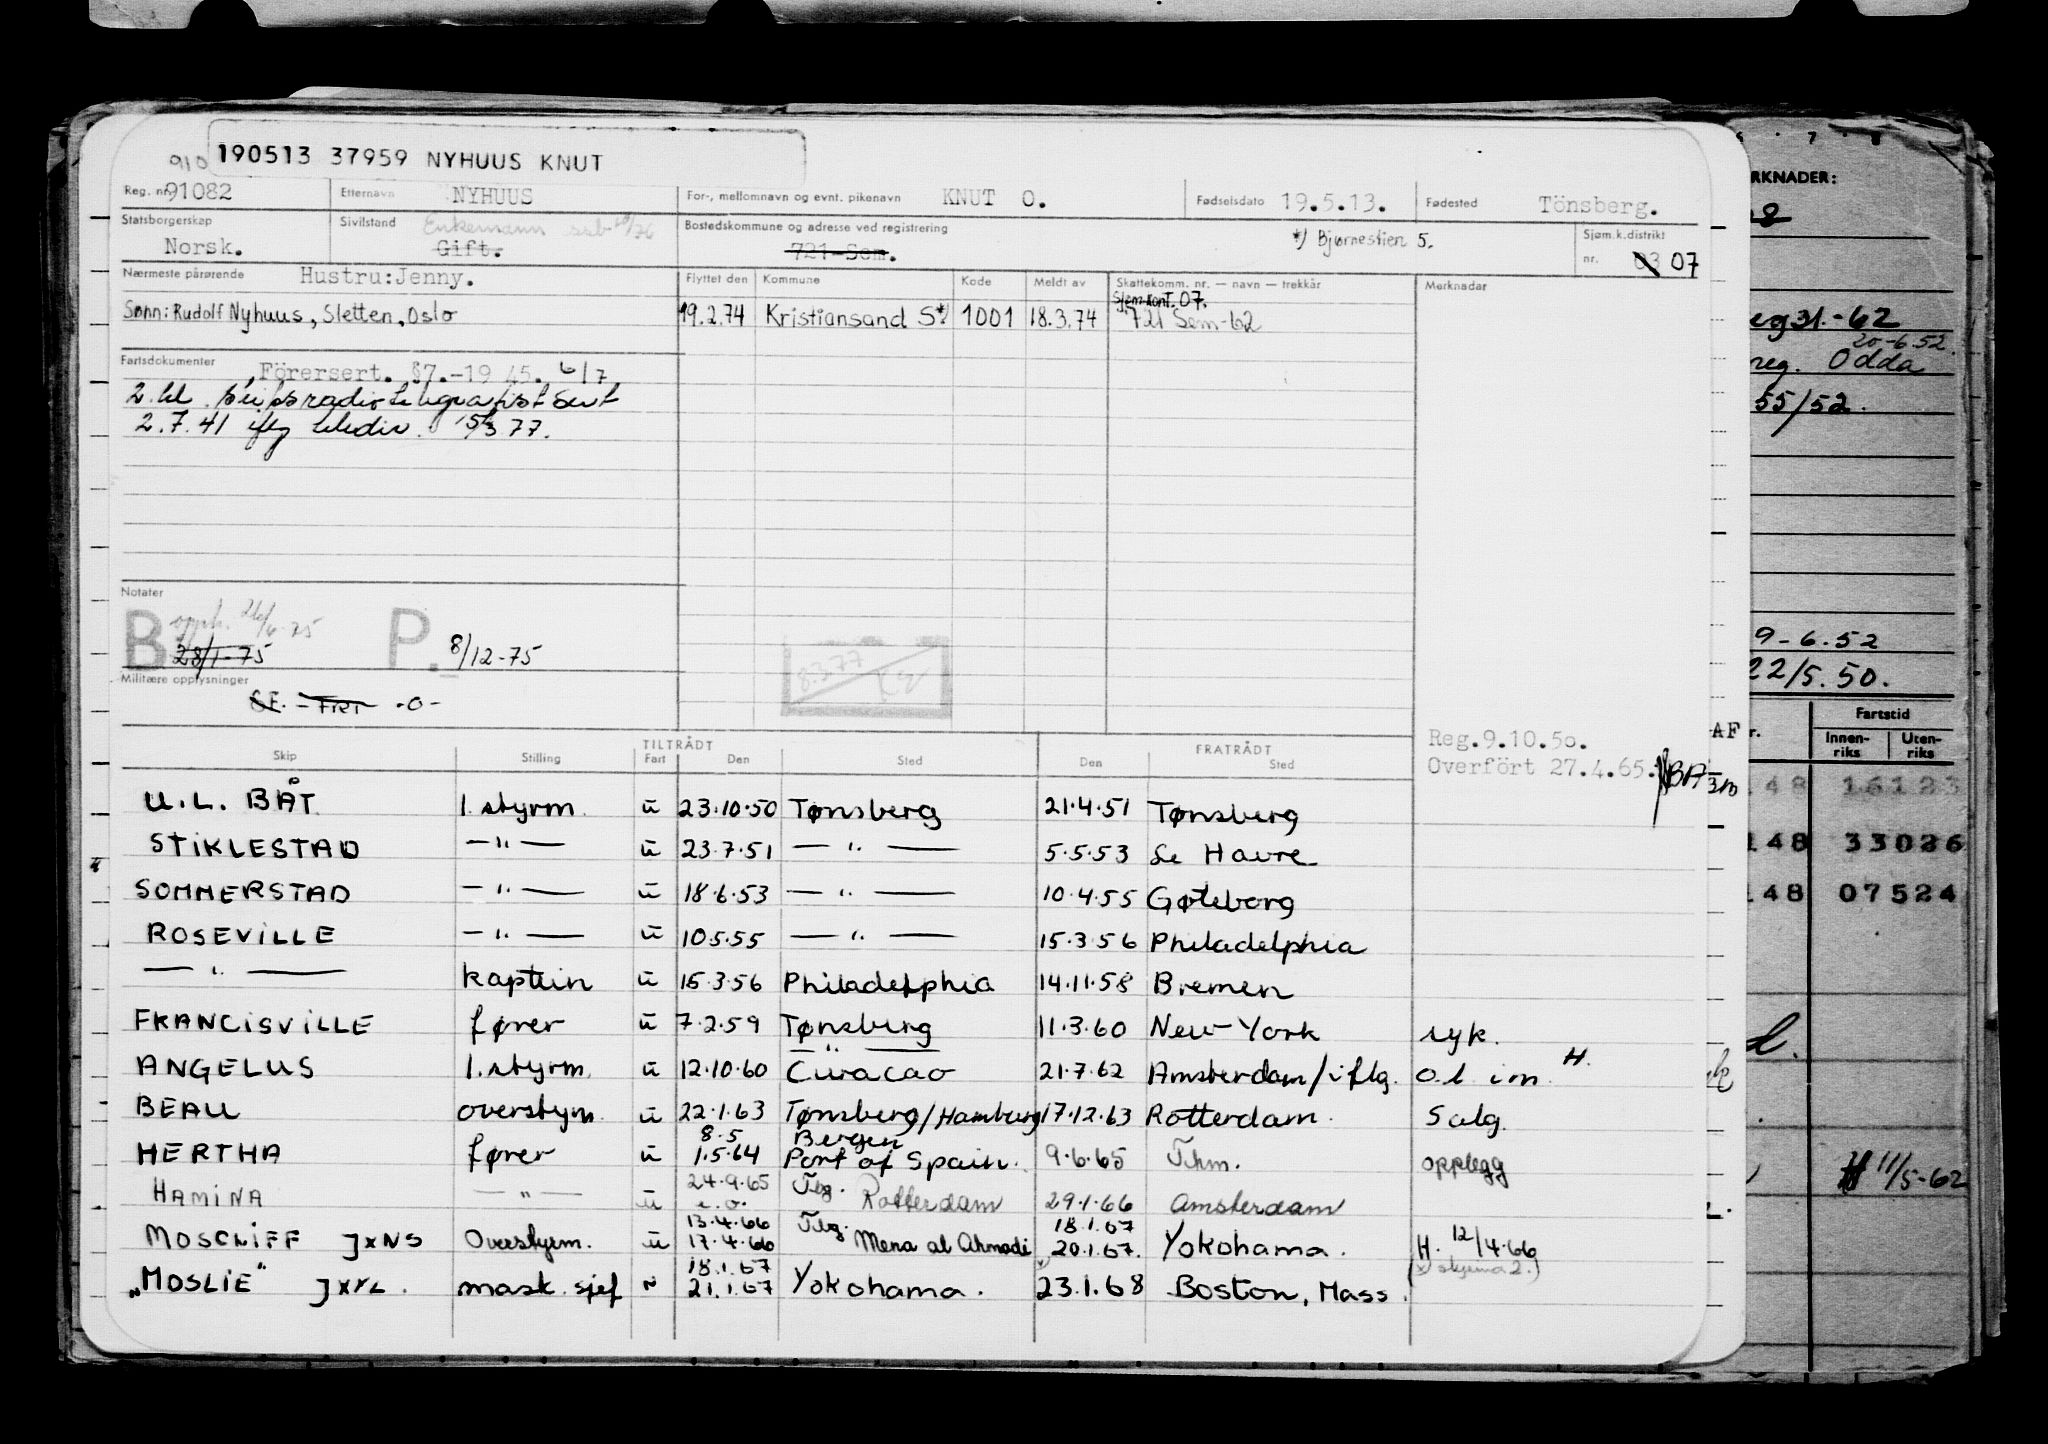 910 190513 37959 NYHUUS KNUT
Reg. nr. 91082 Etternavn NYHUUS For-, mellomnavn og evnt. pikenavn KNUT O. Fødselsdato 19.5.13. Fødested Tönsberg.
Statsborgerskap Norsk. Sivilstand Enkemann Gift. Bostedskommune og adresse ved registrering 721-Sem. *) Bjørnestien 5. Sjøm.k.distrikt nr. 03 07
Nærmeste pårørende Hustru: Jenny. Flyttet den Kommune Kode Meldt av Skattekomm. nr. — navn — trekkår Merknader
Sjøm.kont. 07.
Sønn: Rudolf Nyhuus, Sletten, Oslo 19.2.74 Kristiansand S*) 1001 18.3.74 721 Sem-62
Fartsdokumenter Förersert. §7.-19 45. 6/7
2. kl. skipsradiotelegrafist sert
2.7.41 iflg teledir. 15/3 77.
Notater
B opph. 26/6-75
28/1-75 P. 8/12-75
8.3.77
Militære opplysninger
SE. - FRI -0-
Reg.9.10.50.
Overfört 27.4.65.
TILTRÅDT FRATRÅDT
Skip Stilling Fart Den Sted Den Sted
U.L. BÅT 1. styrm. u 23.10.50 Tønsberg 21.4.51 Tønsberg
STIKLESTAD —"— u 23.7.51 —"— 5.5.53 Le Havre
SOMMERSTAD —"— u 18.6.53 —"— 10.4.55 Gøteborg
ROSEVILLE —"— u 10.5.55 —"— 15.3.56 Philadelphia
—"— kaptein u 15.3.56 Philadelphia 14.11.58 Bremen
FRANCISVILLE fører u 7.2.59 Tønsberg 11.3.60 New York syk.
—"—
ANGELUS 1. styrm. u 12.10.60 Curacao 21.7.62 Amsterdam/iflg. o.l. inn. H.
BEAU overstyrm. u 22.1.63 Tønsberg/Hamburg 17.12.63 Rotterdam. Salg.
8.5 Bergen
HERTHA fører u 1.5.64 Port of Spain. 9.6.65 Thm. opplegg
24.9.65 Tbg.
HAMINA —"— u e.o. Rotterdam 29.1.66 Amsterdam
13.4.66 Tbg. 18.1.67
MOSCLIFF JXNS Overstyrm. u 17.4.66 Mena al Ahmadi 20.1.67. Yokohama. H. 12/4.66
18.1.67 (x) skjema 2.)
"MOSLIE" JXYL. mask. sjef N 21.1.67 Yokohama. 23.1.68 Boston, Mass.
6 7 8
RKNADER:
eg 31.-62
20-6.52.
reg. Odda
55/52.
9-6.52
22/5.50.
AF r. Fartstid
Innenriks Utenriks
148 16123
148 33026
148 07524
H 11/5-62